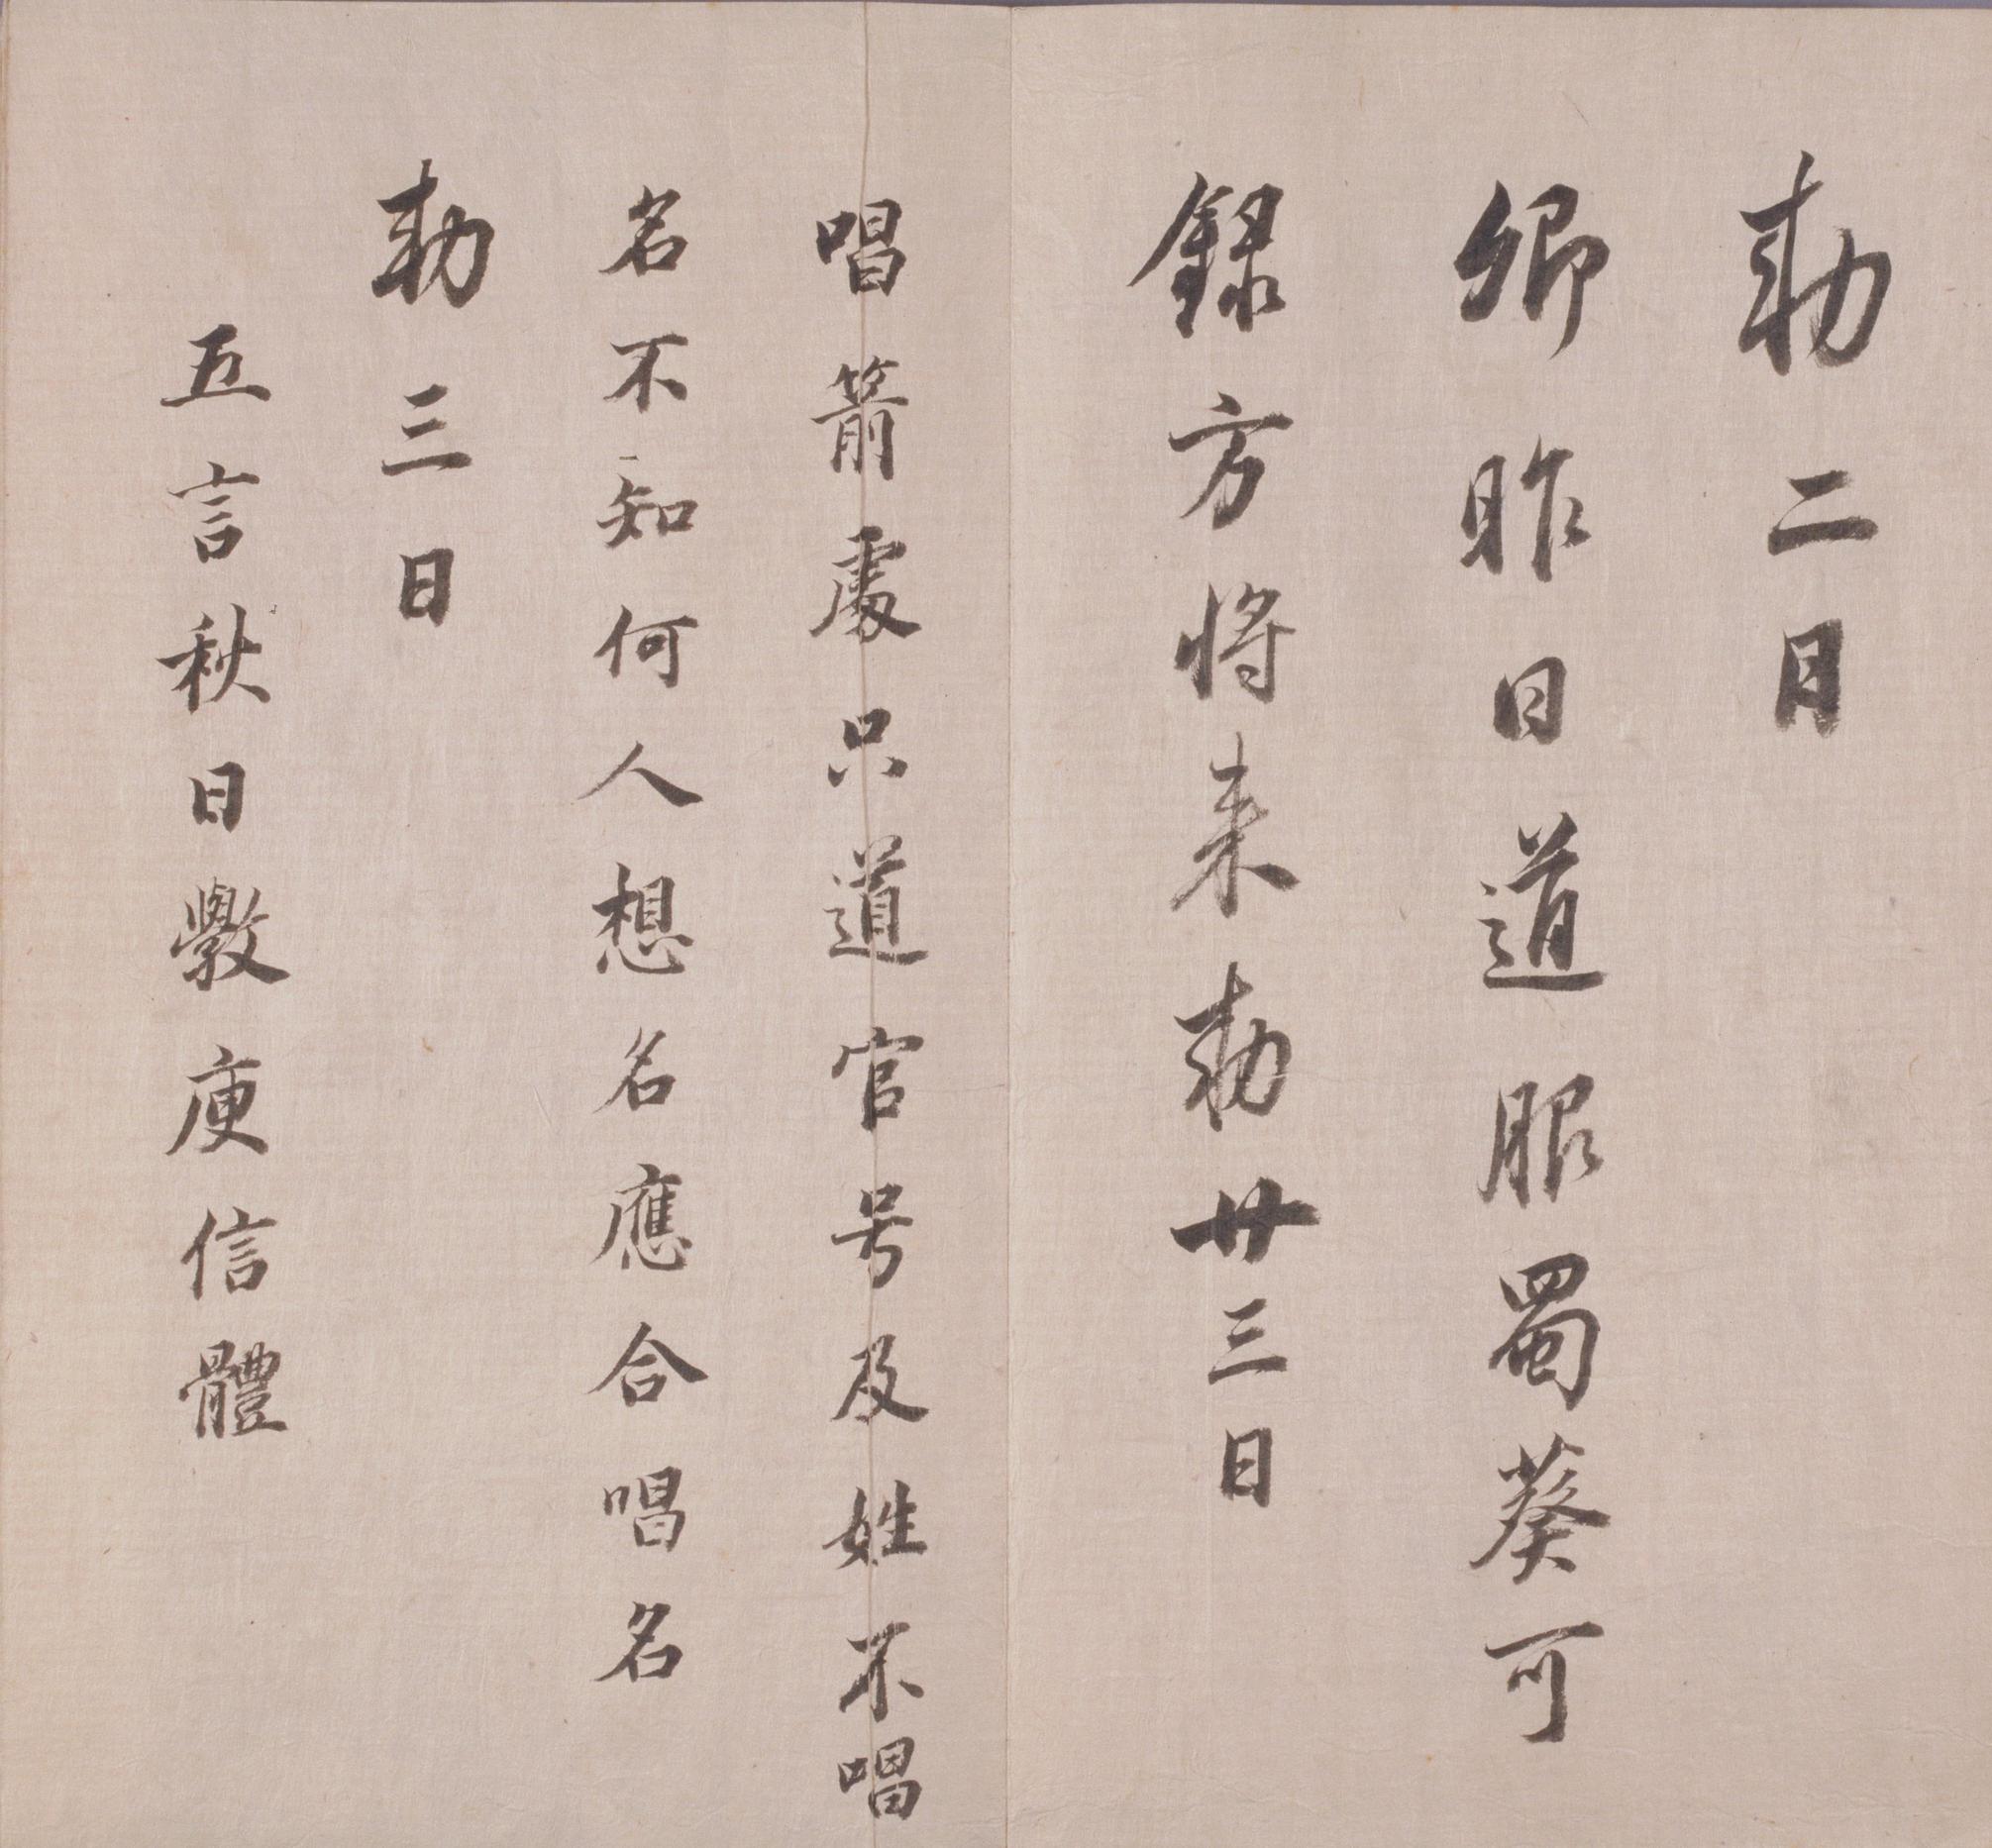 勅二日
卿昨日道服蜀葵可
録方将来勅廿三日
唱箭處只道官号及姓不唱
名不知何人想名應合唱名
勅三日
五言秋日斆庾信體